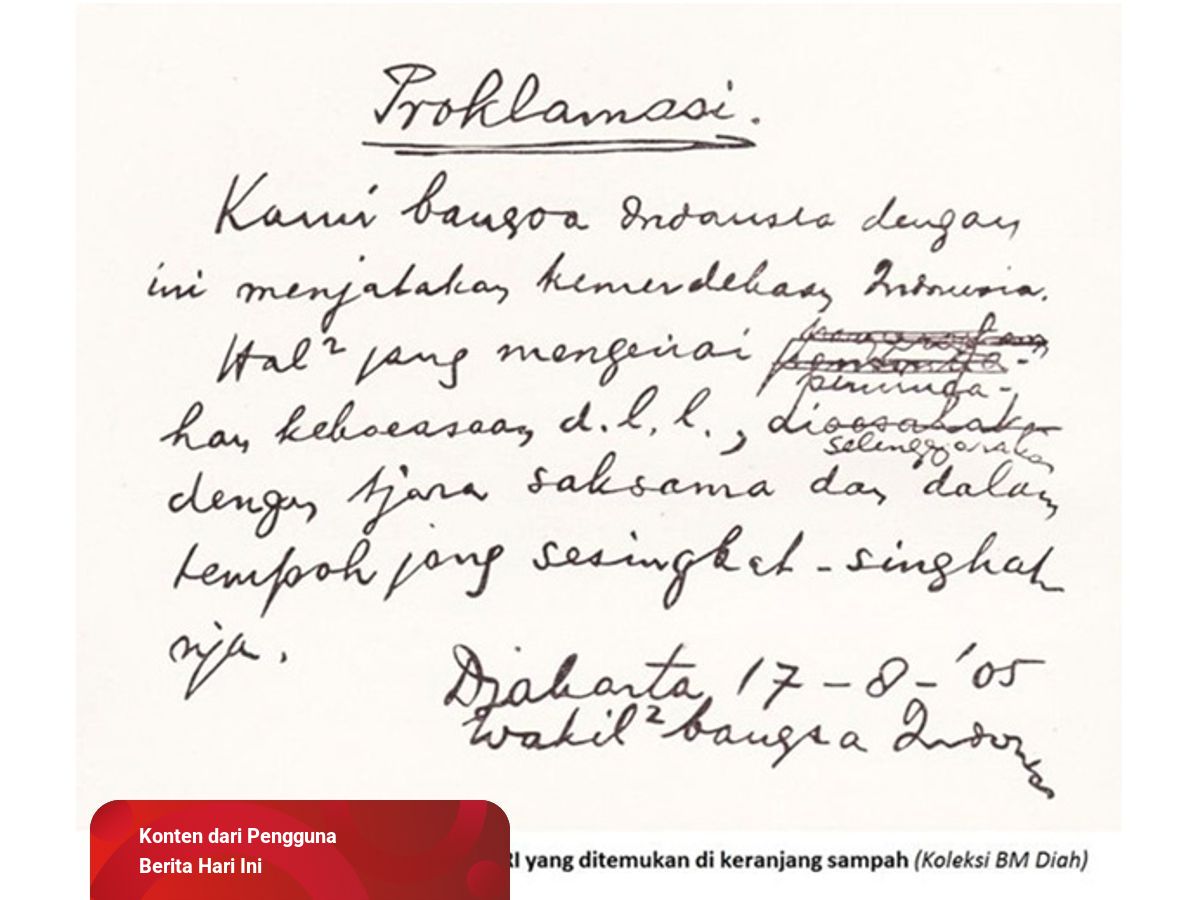 Proklamasi.
Kami bangsa Indonesia dengan
ini menjatakan kemerdekaan Indonesia.
Hal² jang mengenai
peminda-
han keboeasaan d.l.l., dioesahakan
selenggarakan
dengan tjara saksama dan dalam
tempoh jang sesingkat-singkat
nja.
Djakarta 17-8-'05
Wakil² bangsa Indonesia
Konten dari Pengguna
Berita Hari Ini
RI yang ditemukan di keranjang sampah (Koleksi BM Diah)